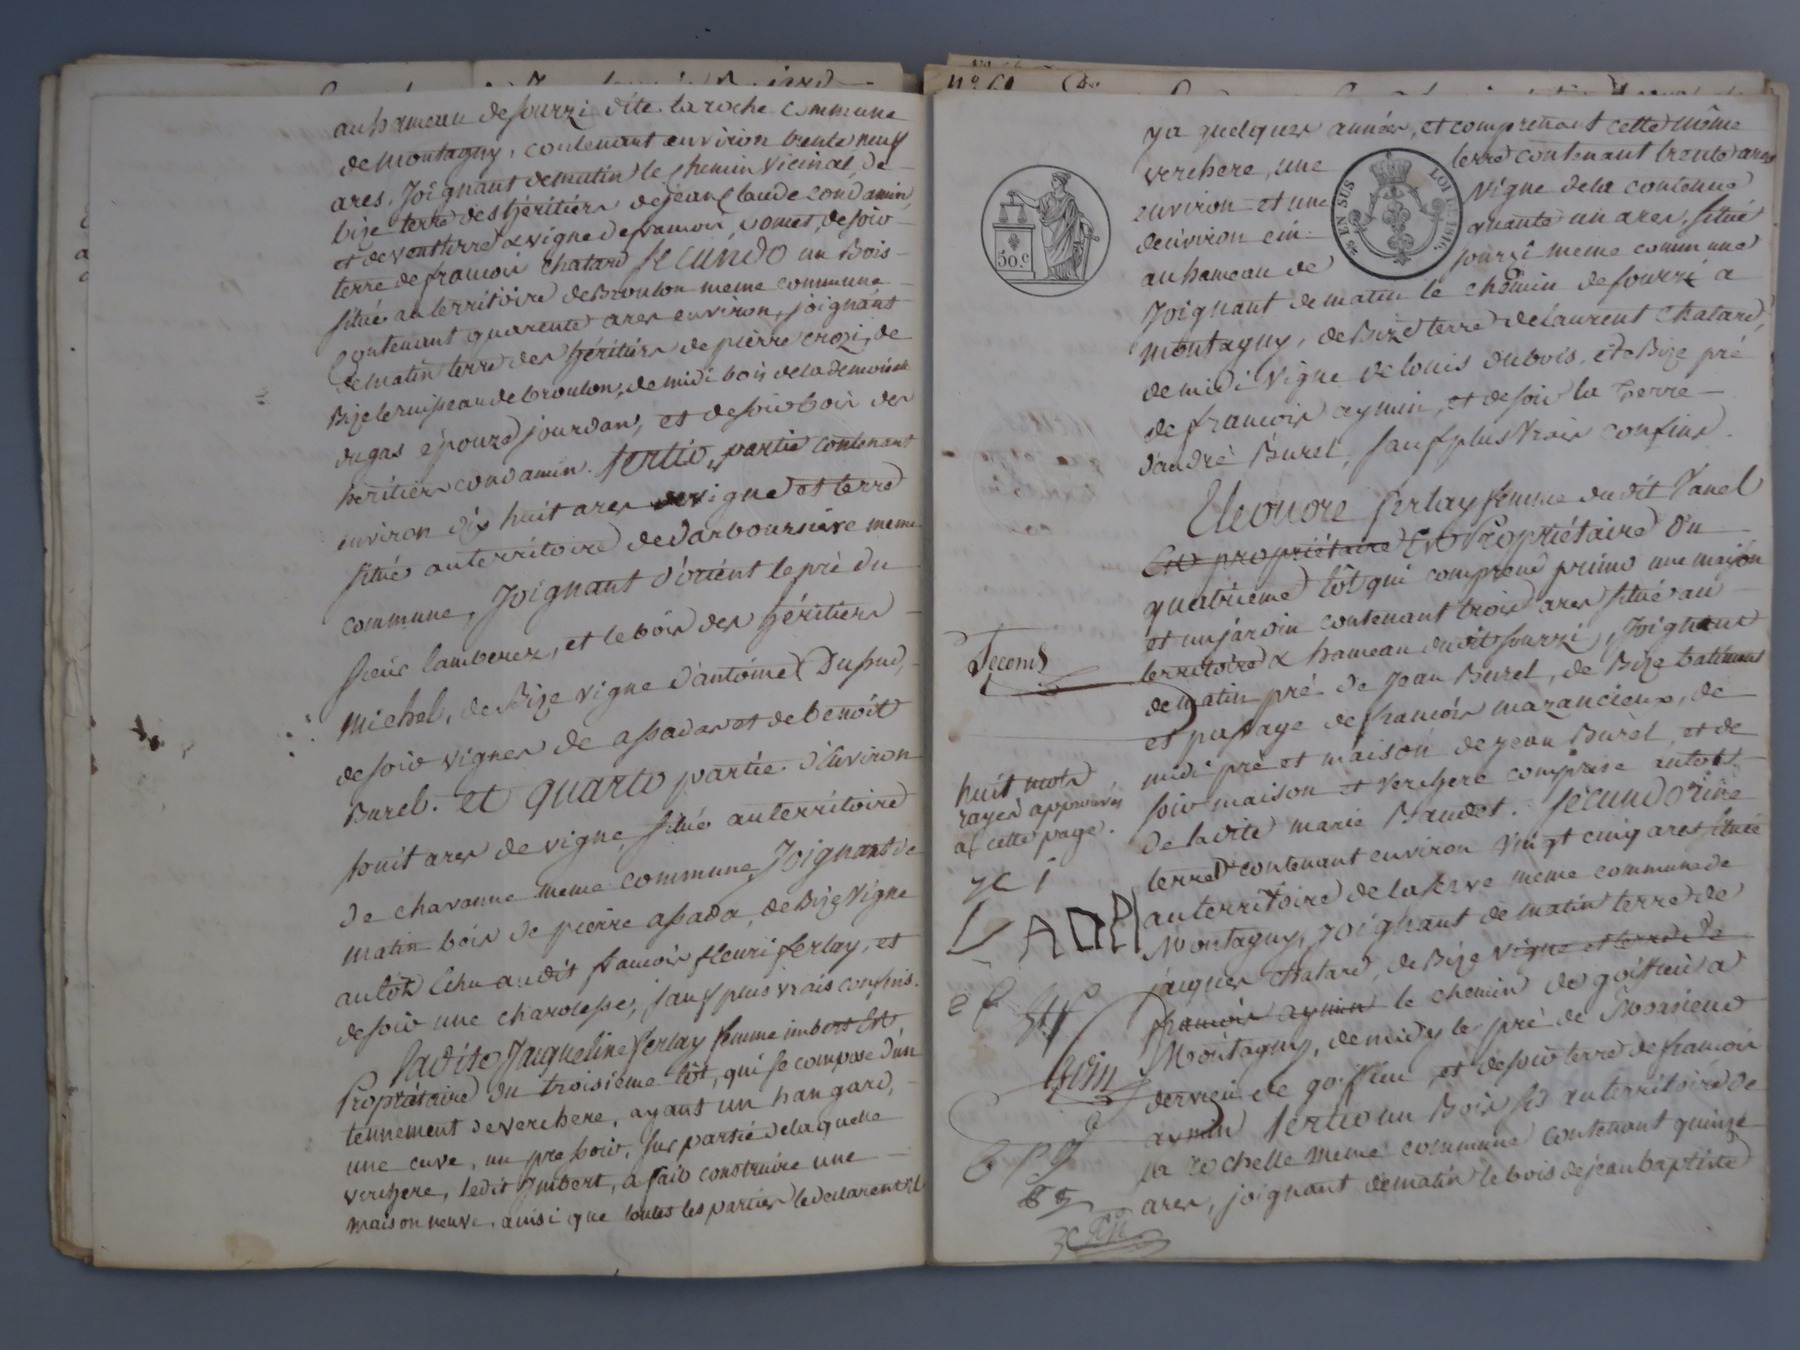 au hameau de fourzi dite la roche commune
de montagny, contenant environ trente neuf
ares, Joignant de matin le chemin vicinal, de
bize terre des héritiers de jean claude condamin,
et de vent terre & vigne de francois vomet, de soir
terre de francois chatard SECUNDO un Bois
situé au territoire de Broulon meme commune
contenant quarente ares environ, joignant
de matin terre des héritiers de pierre crozi, de
Bize le ruisseau de broulon, de midi bois de la demoiselle
dugas épouze jourdan, et de soir bois des
héritiers condamin. tertio, partie contenant
environ dix huit ares vigne et terre
situé au territoire de darboursière meme
commune, Joignant d'orient le pré du
sieur lamberer, et le bois des héritiers
Michel, de Bize vigne d'antoine Dupud,
de soir vignes de assada et de benoit
Burel. et quarto partie d'Environ
huit ares de vigne, situé au territoire
de chavanne meme commune, Joignant de
matin bois de pierre assada, de Bize Vigne
au lôt Echu audit francois fleuri ferlay, et
de soir une charolesse, sauf plus vrais confins.
Ladite Jacqueline ferlay femme imbert Est
Propriétaire du troisième lôt, qui se compose d'un
tennement de verchere, ayant un hangard,
une cuve, un pressoir, sur partie de laquelle
verchere, ledit Imbert, a fait construire une
maison neuve, ainsi que toutes les parties le déclarent il
n° 60
ya quelques années, et comprenant cette même
verchere, une terre contenant trente ares
environ et une vigne de la contenue
d'environ cin quante un ares, situé
au hameau de fourzi meme commune
Joignant de matin le chemin de fourzi a
montagny, de Bize terre de laurent chatard,
de midi vigne de louis dubois, et de Bize pré
de francois aymin, et de soir la terre
d'andré Burel, sauf plus vrais confins.
50.c
EN SUS LOI DE 1816.
Eleonore ferlay femme dudit Vanel
Est propriétaire Est Propriétaire Du
quatrieme lôt qui comprend primo une maison
et un jardin contenant trois ares situé au
territoire & hameau dudit fourzi, Joignant
de matin pré de Jean Burel, de Bize batiment
et passage de francois mazancieux, de
midi pré et maison de jean Burel, et de
soir maison et verchere comprise au lot
de ladite marie baudet. SECUNDO Une
terre contenant environ vingt cinq ares située
au territoire de la serve meme commune de
Montagny, Joignant de matin terre de
jacques chatard, de Bize vigne et terre de
francois aymin le chemin de goiffieu a
Montagny, de midy le pré de Monsieur
dervieu de goiffieu et de soir terre de francois
aymin tertio un Bois sis au territoire de
la rochelle meme commune contenant quinze
ares, joignant de matin le bois de jean baptiste
huit mots
rayés approuvés
a cette page.